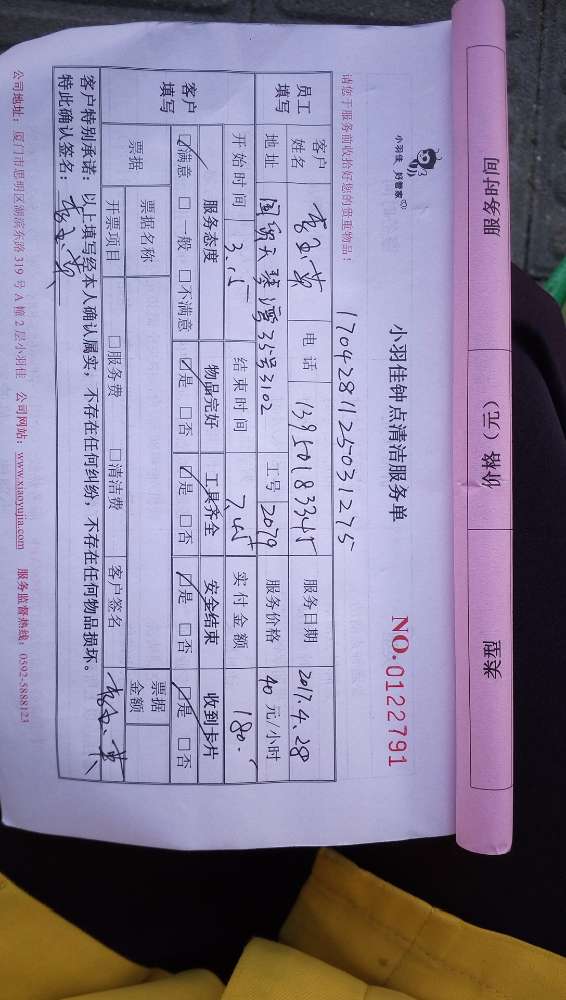 服务时间 价格（元） 类型
小羽佳 好管家
小羽佳钟点清洁服务单
NO.0122791
请您于服务前收拾好您的贵重物品！
17042811250031275
员工填写
客户姓名 电话 13950183345 服务日期 2017.4.28
地址 国贸天琴湾35号3102 工号 2079 服务价格 40 元/小时
开始时间 3.15 结束时间 7.45 实付金额 180.
客户填写
服务态度 物品完好 工具齐全 安全结束 收到卡片
☑满意 □一般 □不满意 ☑是 □否 ☑是 □否 ☑是 □否 ☑是 □否
票据 票据名称 票据金额
开票项目 □服务费 □清洁费 客户签名
客户特别承诺：以上填写经本人确认属实，不存在任何纠纷，不存在任何物品损坏。
特此确认签名：
公司地址：厦门市思明区湖滨东路 319 号 A 幢 2 层小羽佳 公司网站：www.xiaoyujia.com 服务监督热线：0592-5888123